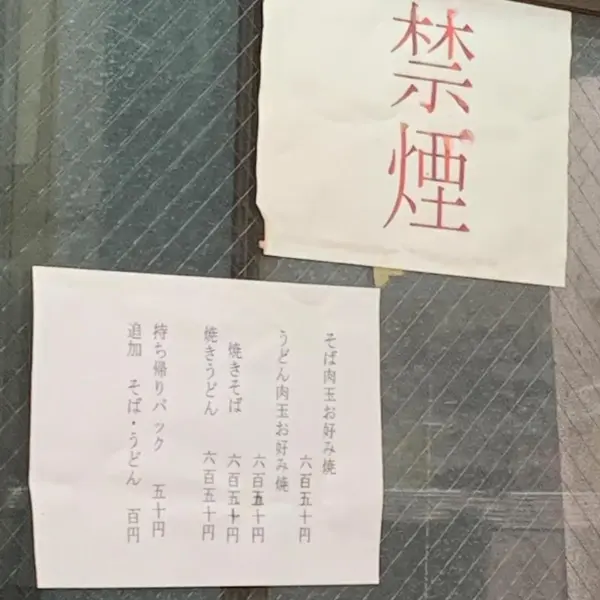 禁煙
そば肉玉お好み焼
六百五十円
うどん肉玉お好み焼
六百五十円
焼きそば 六百五十円
焼きうどん 六百五十円
持ち帰りパック 五十円
追加 そば・うどん 百円